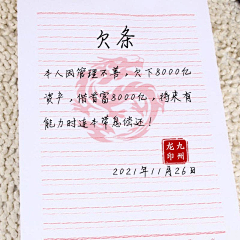 欠条
本人因管理不善，欠下8000亿
资产，借首富8000亿，将来有
能力时连本带息偿还！
九州
龙印
2021年11月26日